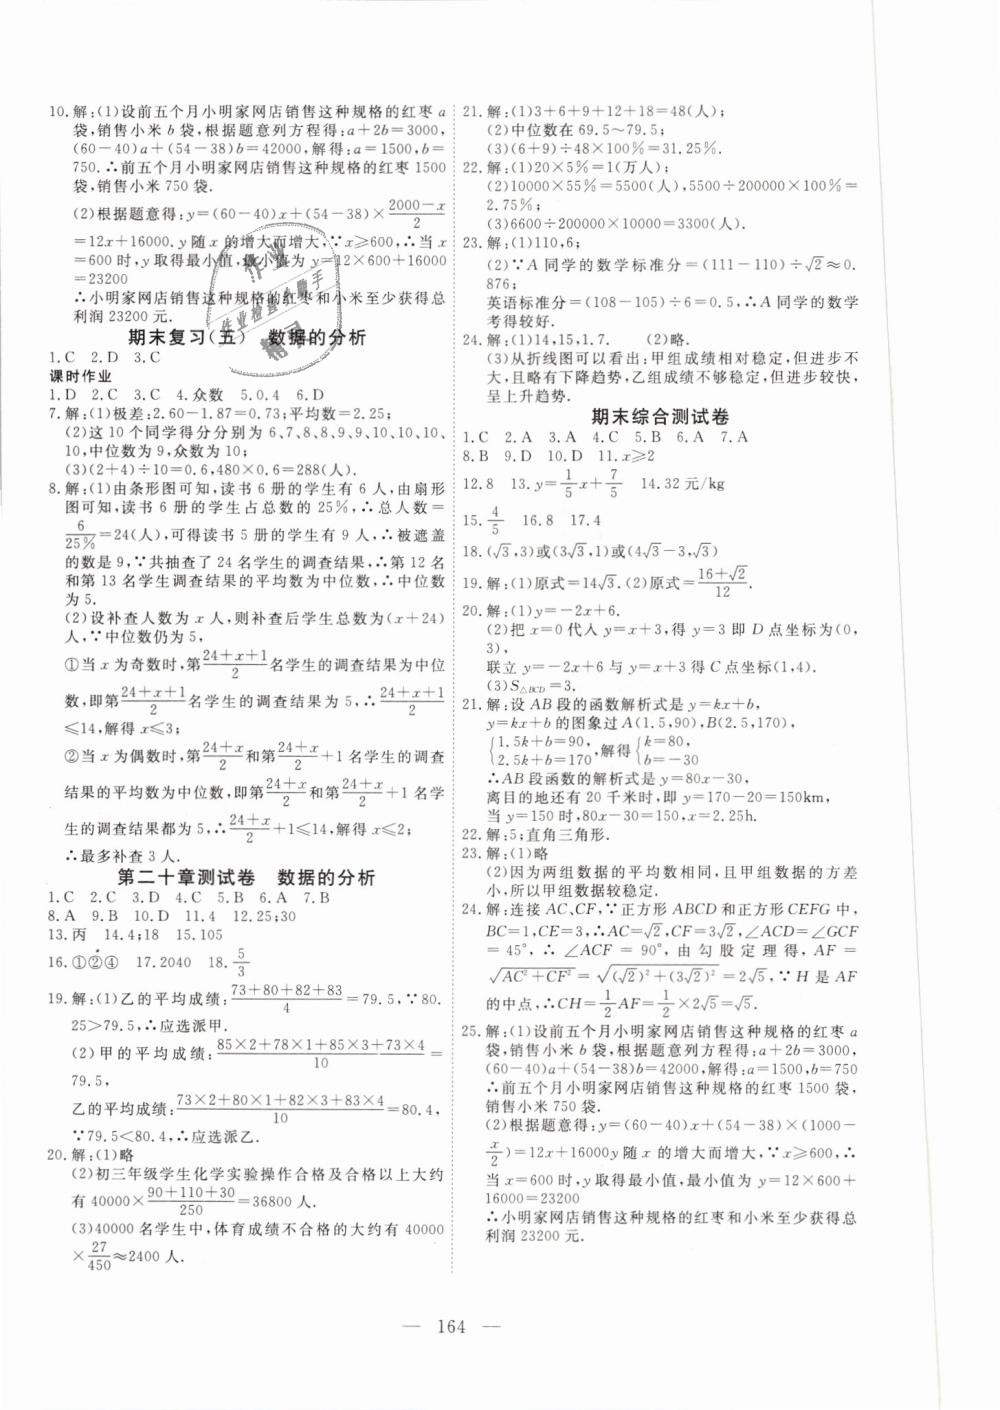 10. 解:(1)设前五个月小明家网店销售这种规格的红枣 a
袋,销售小米 b 袋,根据题意列方程得:a+2b=3000,
(60-40)a+(54-38)b=42000,解得:a=1500,b=
750.∴前五个月小明家网店销售这种规格的红枣 1500
袋,销售小米 750 袋.
(2)根据题意得:y=(60-40)x+(54-38)×(2000-x)/2
=12x+16000.y 随 x 的增大而增大,∵x≥600,∴当 x
=600 时,y 取得最小值,最小值为 y=12×600+16000
=23200
∴小明家网店销售这种规格的红枣和小米至少获得总
利润 23200 元.
期末复习(五) 数据的分析
1. C 2. D 3. C
课时作业
1. D 2. C 3. C 4. 众数 5. 0.4 6. D
7. 解:(1)极差:2.60-1.87=0.73;平均数=2.25;
(2)这 10 个同学得分分别为 6、7、8、8、9、9、10、10、10、
10,中位数为 9,众数为 10;
(3)(2+4)÷10=0.6,480×0.6=288(人).
8. 解:(1)由条形图可知,读书 6 册的学生有 6 人,由扇形
图可知,读书 6 册的学生占总数的 25%,∴总人数=
6/25%=24(人),可得读书 5 册的学生有 9 人,∴被遮盖
的数是 9,∵共抽查了 24 名学生的调查结果,∴第 12 名
和第 13 名学生调查结果的平均数为中位数,∴中位数
为 5.
(2)设补查人数为 x 人,则补查后学生总数为(x+24)
人,∵中位数仍为 5,
①当 x 为奇数时,第(24+x+1)/2名学生的调查结果为中位
数,即第(24+x+1)/2名学生的调查结果为 5,∴(24+x+1)/2
≤14,解得 x≤3;
②当 x 为偶数时,第(24+x)/2和第(24+x)/2+1 名学生的调查
结果的平均数为中位数,即第(24+x)/2和第(24+x)/2+1 名学
生的调查结果都为 5,∴(24+x)/2+1≤14,解得 x≤2;
∴最多补查 3 人.
第二十章测试卷 数据的分析
1. C 2. C 3. D 4. C 5. B 6. A 7. B
8. A 9. B 10. D 11. 4 12. 25;30
13. 丙 14. 4;18 15. 105
16. ①②④ 17. 2040 18. 5/3
19. 解:(1)乙的平均成绩:(73+80+82+83)/4=79.5,∵80.
25>79.5,∴应选派甲.
(2)甲的平均成绩:(85×2+78×1+85×3+73×4)/10=
79.5,
乙的平均成绩:(73×2+80×1+82×3+83×4)/10=80.4,
∵79.5<80.4,∴应选派乙.
20. 解:(1)略
(2)初三年级学生化学实验操作合格及合格以上大约
有 40000×(90+110+30)/250=36800 人.
(3)40000 名学生中,体育成绩不合格的大约有 40000
×27/450≈2400 人.
21. 解:(1)3+6+9+12+18=48(人);
(2)中位数在 69.5~79.5;
(3)(6+9)÷48×100%=31.25%.
22. 解:(1)20×5%=1(万人);
(2)10000×55%=5500(人),5500÷200000×100%=
2.75%;
(3)6600÷200000×10000=3300(人).
23. 解:(1)110,6;
(2)∵A 同学的数学标准分=(111-110)÷√2≈0.
876;
英语标准分=(108-105)÷6=0.5,∴A 同学的数学
考得较好.
24. 解:(1)14,15,1.7. (2)略.
(3)从折线图可以看出:甲组成绩相对稳定,但进步不
大,且略有下降趋势,乙组成绩不够稳定,但进步较快,
呈上升趋势.
期末综合测试卷
1. C 2. A 3. A 4. C 5. B 6. A 7. A
8. B 9. D 10. D 11. x≥2
12. 8 13. y=1/5x+7/5 14. 32 元/kg
15. 4/5 16. 8 17. 4
18. (√3,3)或(3√3,1)或(4√3-3,√3)
19. 解:(1)原式=14√3.(2)原式=(16+√2)/12.
20. 解:(1)y=-2x+6.
(2)把 x=0 代人 y=x+3,得 y=3 即 D 点坐标为(0,
3),
联立 y=-2x+6 与 y=x+3 得 C 点坐标(1,4).
(3)S△BCD=3.
21. 解:设 AB 段的函数解析式是 y=kx+b,
y=kx+b 的图象过 A(1.5,90),B(2.5,170),
{1.5k+b=90, 2.5k+b=170,解得{k=80, b=-30
∴AB 段函数的解析式是 y=80x-30,
离目的地还有 20 千米时,即 y=170-20=150km,
当 y=150 时,80x-30=150,x=2.25h.
22. 解:5;直角三角形.
23. 解:(1)略
(2)因为两组数据的平均数相同,且甲组数据的方差
小,所以甲组数据较稳定.
24. 解:连接 AC、CF,∵正方形 ABCD 和正方形 CEFG 中,
BC=1,CE=3,∴AC=√2,CF=3√2,∠ACD=∠GCF
=45°,∴∠ACF=90°,由勾股定理得,AF=
√(AC²+CF²)=√((√2)²+(3√2)²)=2√5,∵H 是 AF
的中点,∴CH=1/2AF=1/2×2√5=√5.
25. 解:(1)设前五个月小明家网店销售这种规格的红枣 a
袋,销售小米 b 袋,根据题意列方程得:a+2b=3000,
(60-40)a+(54-38)b=42000,解得:a=1500,b=750
∴前五个月小明家网店销售这种规格的红枣 1500 袋,
销售小米 750 袋.
(2)根据题意得:y=(60-40)x+(54-38)×(1000-
x/2)=12x+16000y 随 x 的增大而增大,∵x≥600,∴
当 x=600 时,y 取得最小值,最小值为 y=12×600+
16000=23200
∴小明家网店销售这种规格的红枣和小米至少获得总
利润 23200 元.
— 164 —
作业
作业检查小帮手
精灵